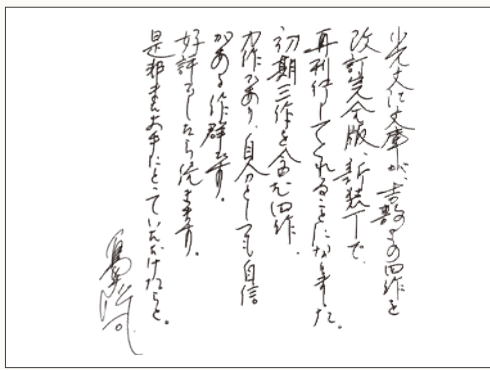 光文社文庫が、吉敷もの四作を
改訂完全版、新装丁で、
再刊行してくれることになりました。
初期三作を含む四作、
力作であり、自分としても自信
がある作群です。
好評でしたら続きます。
是非またお手にとっていただけたらと。
島田荘司